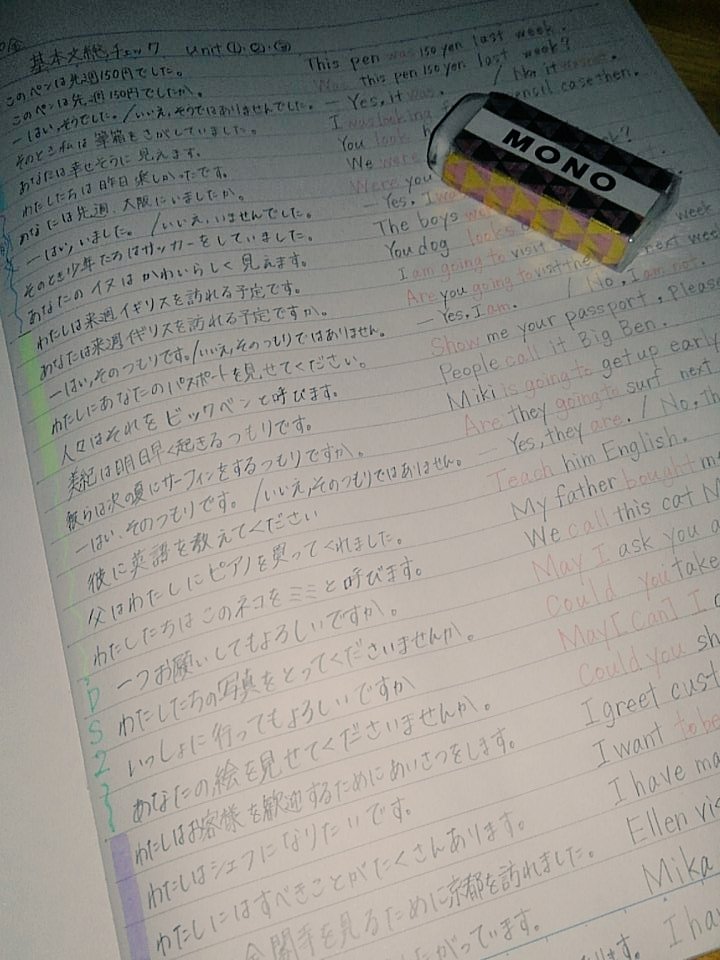 基本文総チェック unit①・②・③
このペンは先週150円でした。 This pen was 150 yen last week.
このペンは先週150円でしたか。 Was this pen 150 yen last week?
―はい、そうでした。/いいえ、そうではありませんでした。 — Yes, it was. / No, it wasn't.
そのとき私は筆箱をさがしていました。 I was looking pencil case then.
あなたは幸せそうに見えます。 You look
わたしたちは昨日楽しかったです。 We were
あなたは先週、大阪にいましたか。 Were you
―はい、いました。/いいえ、いませんでした。 — Yes, I
そのとき少年たちはサッカーをしていました。 The boys
あなたのイヌはかわいらしく見えます。 You dog looks
わたしは来週イギリスを訪れる予定です。 I am going to visit week
あなたは来週イギリスを訪れる予定ですか。 Are you going to visit the next
―はい、そのつもりです。/いいえ、そのつもりではありません。 — Yes, I am. / No, I am not.
わたしにあなたのパスポートを見せてください。 Show me your passport, Please
人々はそれをビックベンと呼びます。 People call it Big Ben.
美紀は明日早く起きるつもりです。 Miki is going to get up early
彼らは次の夏にサーフィンをするつもりですか。 Are they going to surf next
―はい、そのつもりです。/いいえ、そのつもりではありません。 — Yes, they are. / No, th
彼に英語を教えてください Teach him English.
父はわたしにピアノを買ってくれました。 My father bought me
わたしたちはこのネコをミミと呼びます。 We call this cat M
一つお願いしてもよろしいですか。 May I ask you a
わたしたちの写真をとってくださいませんか。 Could you take
いっしょに行ってもよろしいですか May [can] I
あなたの絵を見せてくださいませんか。 Could you sh
わたしはお客様を歓迎するためにあいさつをします。 I greet cust
わたしはシェフになりたいです。 I want to be
わたしにはすべきことがたくさんあります。 I have ma
金閣寺を見るために京都を訪れました。 Ellen vis
たがっています。 Mika
ります。 I ha
MONO